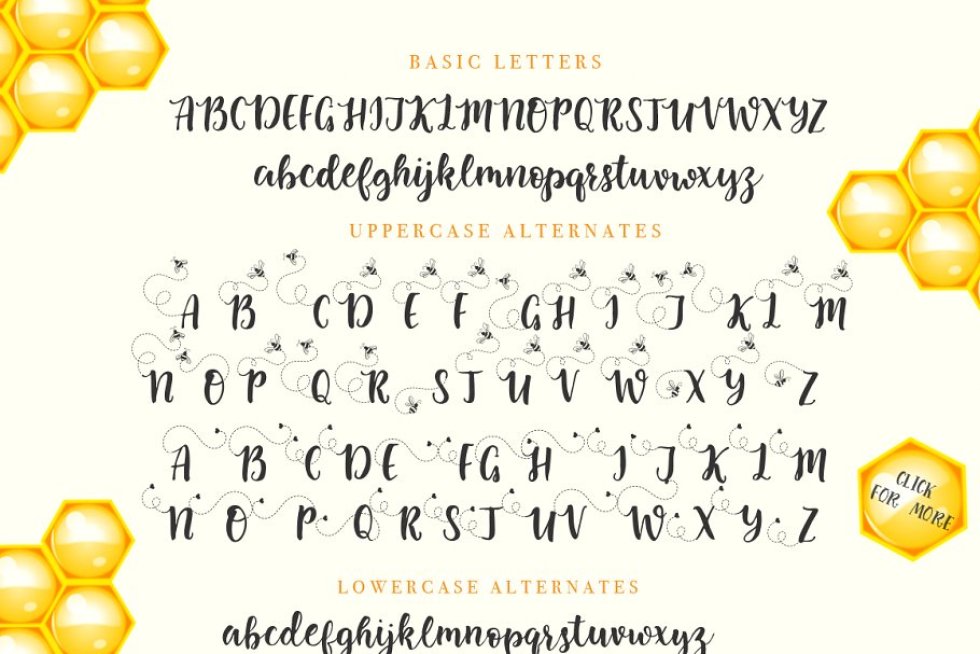 BASIC LETTERS
ABCDEFGHIJKLMNOPQRSTUVWXYZ
abcdefghijklmnopqrstuvwxyz
UPPERCASE ALTERNATES
A B C D E F G H I J K L M
N O P Q R S T U V W X Y Z
A B C D E F G H I J K L M
N O P Q R S T U V W X Y Z
CLICK
FOR MORE
LOWERCASE ALTERNATES
abcdefghijklmnopqrstuvwxyz